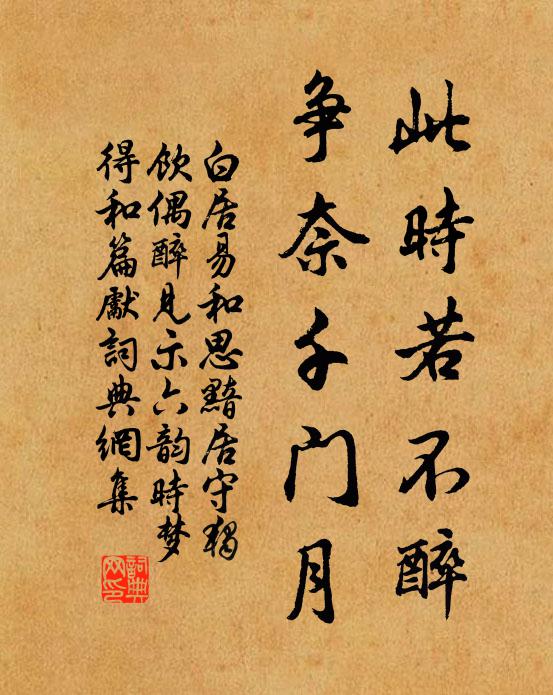 此時若不醉
争奈千门月
白居易和思黯居守独
饮偶醉见示六韵時梦
得和篇獻詞典網集
詞典网印